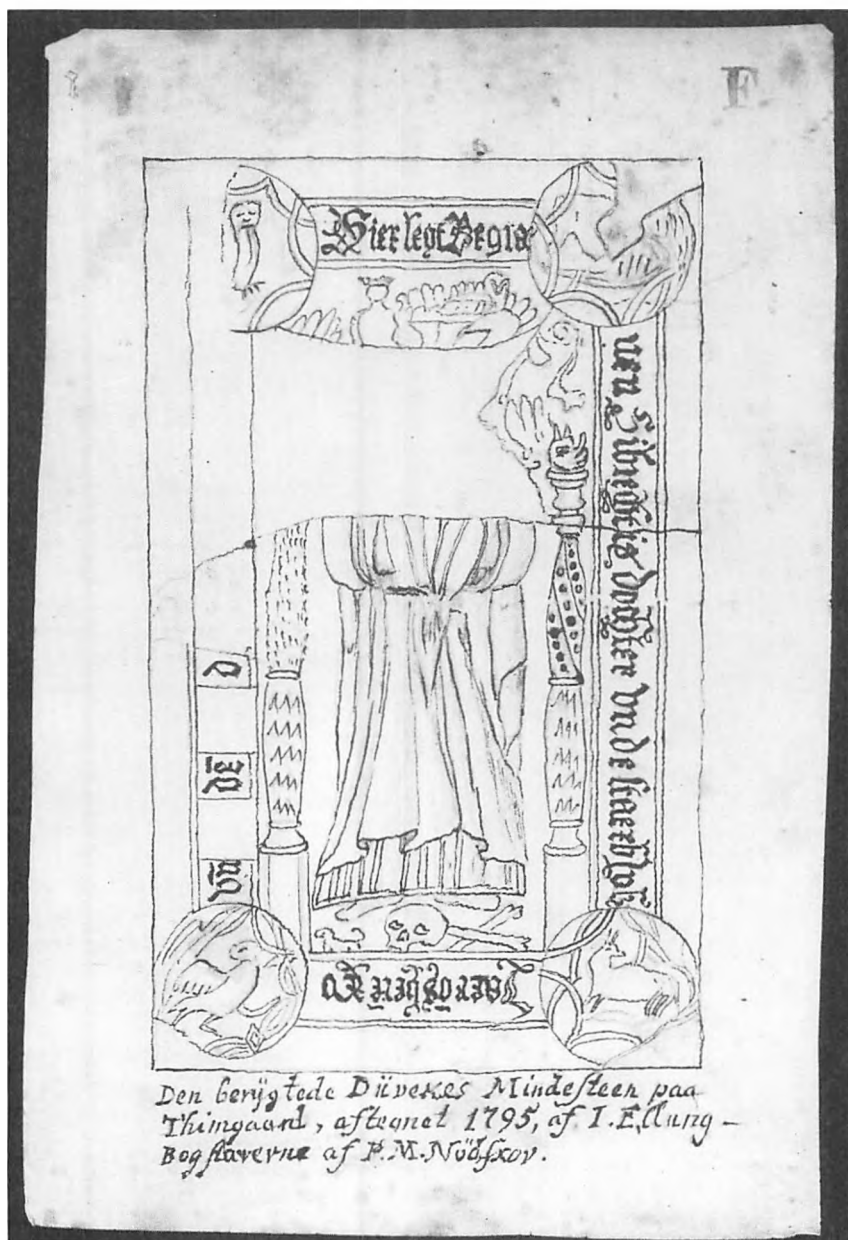 F
Hier legt Begra
uen Sibregtis dochter vnde
d
dē
vn
Den berÿgtede Düvekes Mindesteen paa
Thimgaard, aftegnet 1795, af I. Ellung –
Bogstaverne af P. M. Nödskov.